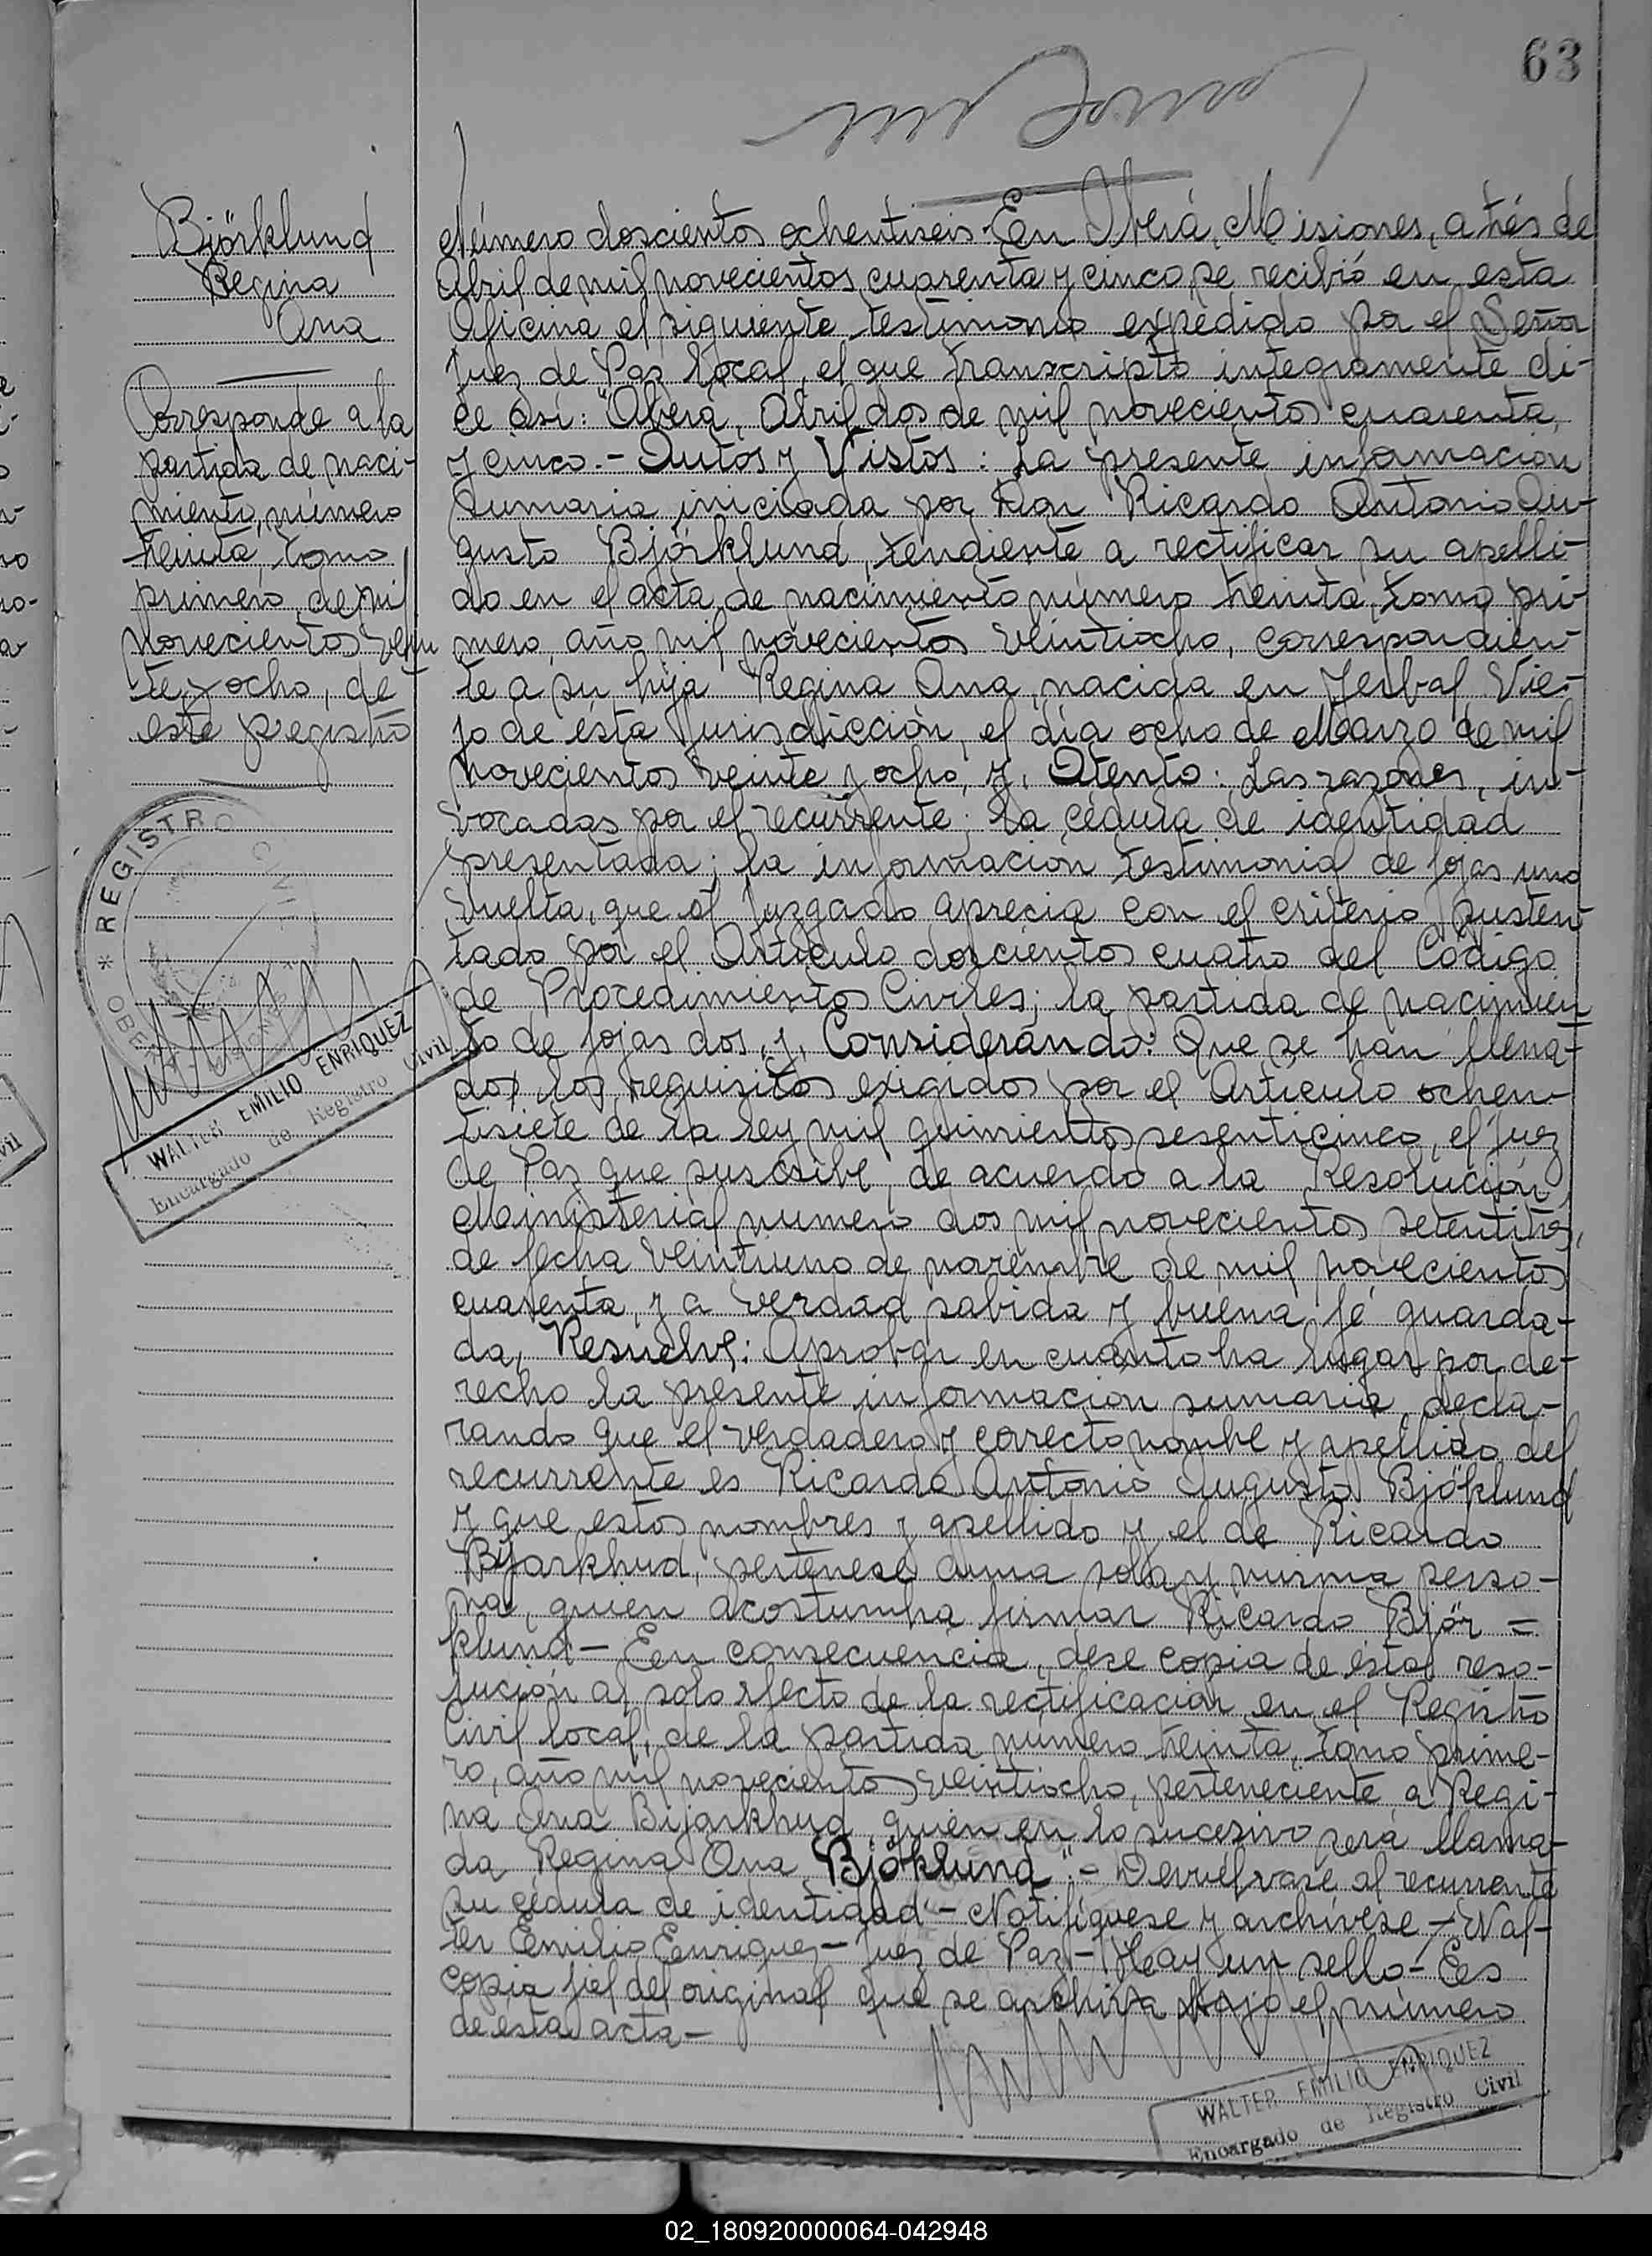 63
Björklund
Regina
Ana
Corresponde a la
partida de naci-
miento, número
treinta, tomo
primero, de mil
novecientos vein
te y ocho, de
este registro
REGISTRO CIVIL
OBERA
MISIONES
WALTER EMILIO ENRIQUEZ
Encargado de Registro Civil
Número doscientos ochentiseis. En Oberá, Misiones, a trés de
Abril de mil novecientos cuarenta y cinco, se recibió en esta
Oficina el siguiente testimonio expedido por el Señor
Juez de Paz local, el que transcripto integramente di-
ce así: "Oberá, Abril dos de mil novecientos cuarenta
y cinco.- Autos y Vistos: La presente información
sumaria iniciada por Don Ricardo Antonio Au-
gusto Björklund, tendiente a rectificar su apelli-
do en el acta de nacimiento número treinta, tomo pri-
mero, año mil novecientos veintiocho, correspondien-
te a su hija Regina Ana, nacida en Yerbal Vie-
jo de ésta Jurisdicción, el día ocho de Marzo de mil
novecientos veinte y ocho, y, Atento: Las razones, in-
vocadas por el recurrente; la cédula de identidad
presentada; la información testimonial de fojas uno
vuelta, que el Juzgado aprecia con el criterio susten-
tado por el Artículo doscientos cuatro del Código
de Procedimientos Civiles; la partida de nacimien
to de fojas dos, y, Considerando: Que se han llena-
dos los requisitos exigidos por el Artículo ochen-
tisiete de la ley mil quinientos sesenticinco, el Juez
de Paz que suscribe, de acuerdo a la Resolución
Ministerial número dos mil novecientos setentitres,
de fecha veintiuno de noviembre de mil novecientos
cuarenta, y a verdad sabida y buena fé guarda-
da, Resuelve: Aprobar en cuanto ha lugar por de-
recho la presente información sumaria, decla-
rando que el verdadero y correcto nombre y apellido del
recurrente es Ricardo Antonio Augusto Björklund
y que estos nombres y apellido y el de Ricardo
Bijarkhud, pertenese a una sola y misma perso-
na, quien acostumba firmar Ricardo Björ=
klund- Een consecuencia, dese copia de ésta reso-
lución al solo efecto de la rectificación en el Registro
Civil local, de la partida número treinta, tomo prime-
ro, año mil novecientos veintiocho, perteneciente a Regi-
na Ana Bijarkhud, quien en lo sucesivo será llama-
da Regina Ana Björklund".- Devuélvase al recurrente
su cédula de identidad- Notifíquese y archívese- Wal-
ter Emilio Eenriquez- Juez de Paz- Heay un sello- Ees
copia fiel del original que se archiva bajo el número
de esta acta-
WALTER EMILIO ENRIQUEZ
Encargado de Registro Civil
02_180920000064-042948